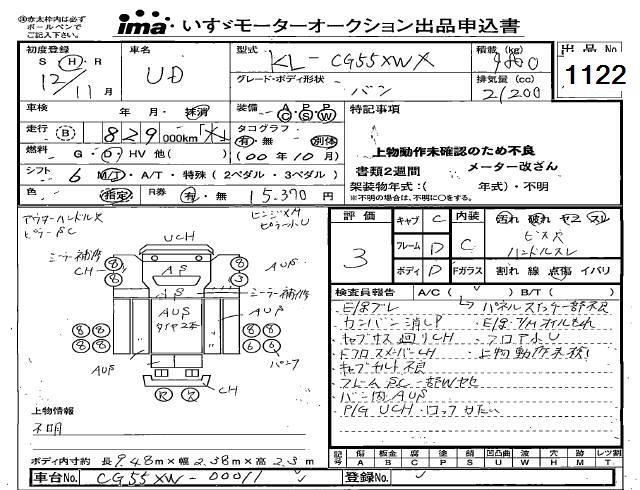 ㊟赤太枠内は必ず
ボールペンで
ご記入下さい。
ima いすゞモーターオークション出品申込書
初度登録 車名 型式 積載 (kg) 出品No
S H R UD KL-CG55XWX 9800
12/11月 グレード・ボディ形状 バン 排気量(cc) 21200 1122
車検 年 月・抹消 装備 AC PS PW 特記事項
走行 B 829 000km タコグラフ 有・無 別体
上物動作未確認のため不良
燃料 G・D・HV 他( ) (00年10月) 書類2週間 メーター改ざん
シフト 6 M/T・A/T・特殊(2ペダル・3ペダル) 架装物年式:( 年式)・不明
色 指定 R券 有・無 15,370円 ※不明の場合は、不明に○をする。
評価 3 キャブ C 内装 C 汚れ 破れ ヤコゲ スレ
ビス穴
ハンドルスレ
フレーム D
ボディ D Fガラス 割れ 線 点傷 イバリ
検査員報告 A/C( ) B/T( )
E/gブレ パネルスイッチ一部不良
カンバン消しP E/g・T/Mオイルもれ
キャブサス廻りCH フロア小U
FクロスメンバーCH 上物動作未確認
キャブチルト不良
バン内AUβ
P/G UCH・ロックかたい
UCH
Aβ
ミラー補修
CH
AUβ
ミラー補修
AUβ
タイヤ2本
AUβ
AUβ
パンク
CH
R R
上物情報
不明
記号 傷 A 板金 B 腐 C 塗 P 錆 S 凹凸曲 U 波 W 穴 H 欠 M レツ割 T
ボディ内寸約 長9.48m×幅2.38m×高2.3m
車台No. CG55XW-00011 登録No.